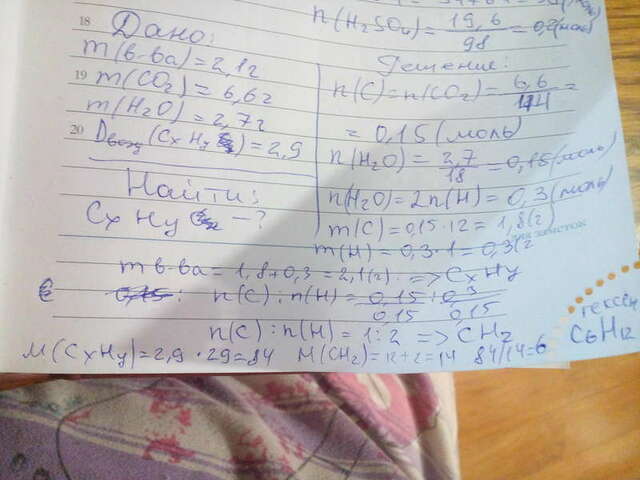 n(H₂SO₄) = 19,6/98 = 0,2(моль)
18
Дано:
m(в-ва) = 2,1г
19 m(CO₂) = 6,6г
m(H₂O) = 2,7г
20 Dвозд(CxHy) = 2,9
Найти:
CxHy - ?
Решение:
n(C) = n(CO₂) = 6,6/44 =
= 0,15 (моль)
n(H₂O) = 2,7/18 = 0,15(моль)
n(H₂O) = 2n(H) = 0,3(моль)
m(C) = 0,15·12 = 1,8(г)
для заметок
m(H) = 0,3·1 = 0,3(г
m в-ва = 1,8+0,3 = 2,1(г) => CxHy
n(C) : n(H) = 0,15/0,15 : 0,3/0,15
n(C) : n(H) = 1:2 => CH₂
M(CxHy) = 2,9·29 = 84 M(CH₂) = 12+2 = 14 84/14 = 6
гексен
C₆H₁₂